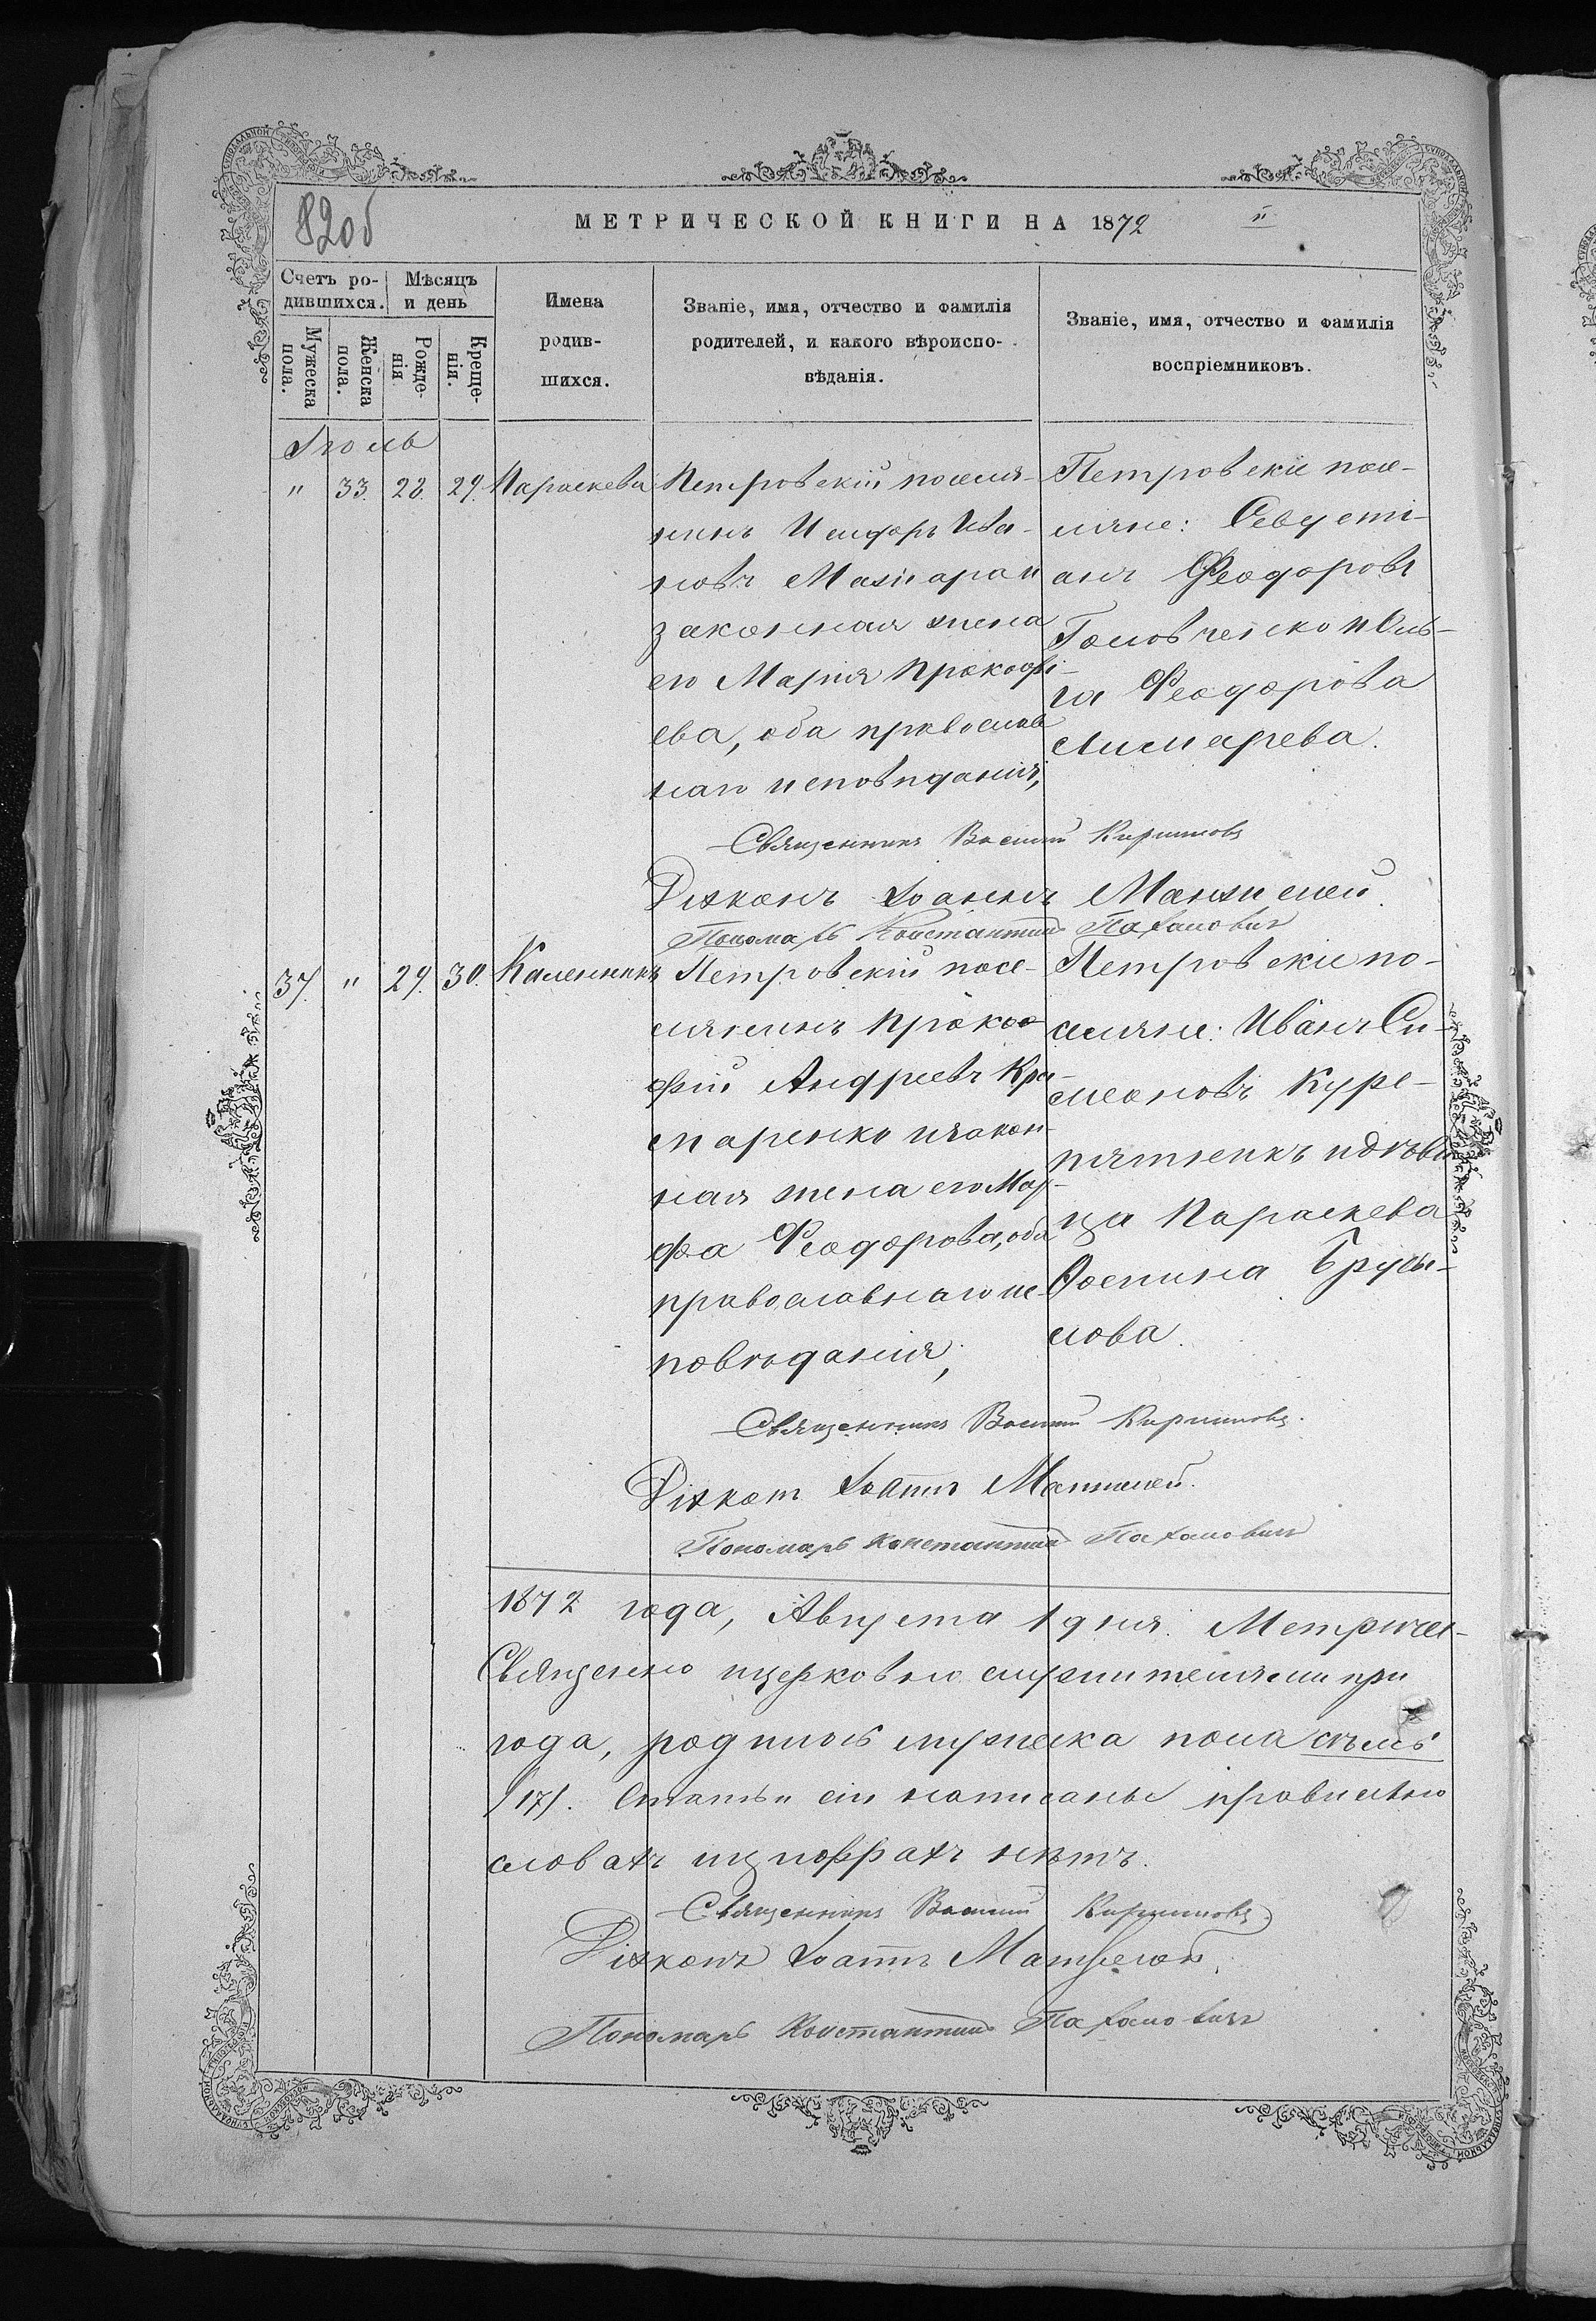 82об
МЕТРИЧЕСКОЙ КНИГИ НА 1872
Счетъ ро-
дившихся.
Мѣсяцъ
и день
Мужеска
пола.
Женска
пола.
Рожде-
нія
Креще-
нія.
Имена
родив-
шихся.
Званіе, имя, отчество и фамилія
родителей, и какого вѣроиспо-
вѣданія.
Званіе, имя, отчество и фамилія
воспріемниковъ.
Июль
" 33. 28. 29. Параскева
Петровскій поселя-
нинъ Исидоръ Ива-
новъ и
законная жена
его Марія Прокофі-
ева, оба православ
наго исповѣданія;
Петровскіе посе-
ляне: Севасті-
анъ Феодоровъ
Головченко и Оль-
га Феодорова
Священникъ Василій Кирилловъ
Діаконъ Іоаннъ
Пономарь Константинъ
37. " 29. 30. Каленникъ
Петровскій посе-
лянинъ Проко-
фій Андреевъ Кра-
маренко и закон-
ная жена его Мар-
фа Феодорова, оба
православнаго ис-
повѣданія;
Петровскіе по-
селяне: Иванъ Си-
меоновъ Куре-
пятникъ и дѣви-
ца Параскева
Фомина Брусы-
лова.
Священникъ Василій Кирилловъ.
Діаконъ Іоаннъ
Пономарь Константинъ
1872 года, Августа 1 дня. Метричес-
Священно церковно служителями при
года, родилось мужеска пола семь
/17/. Статьи сіи написаны правильно
словахъ и цыфрахъ нѣтъ.
Священникъ Василій Кирилловъ
Діаконъ Іоаннъ
Пономарь Константинъ